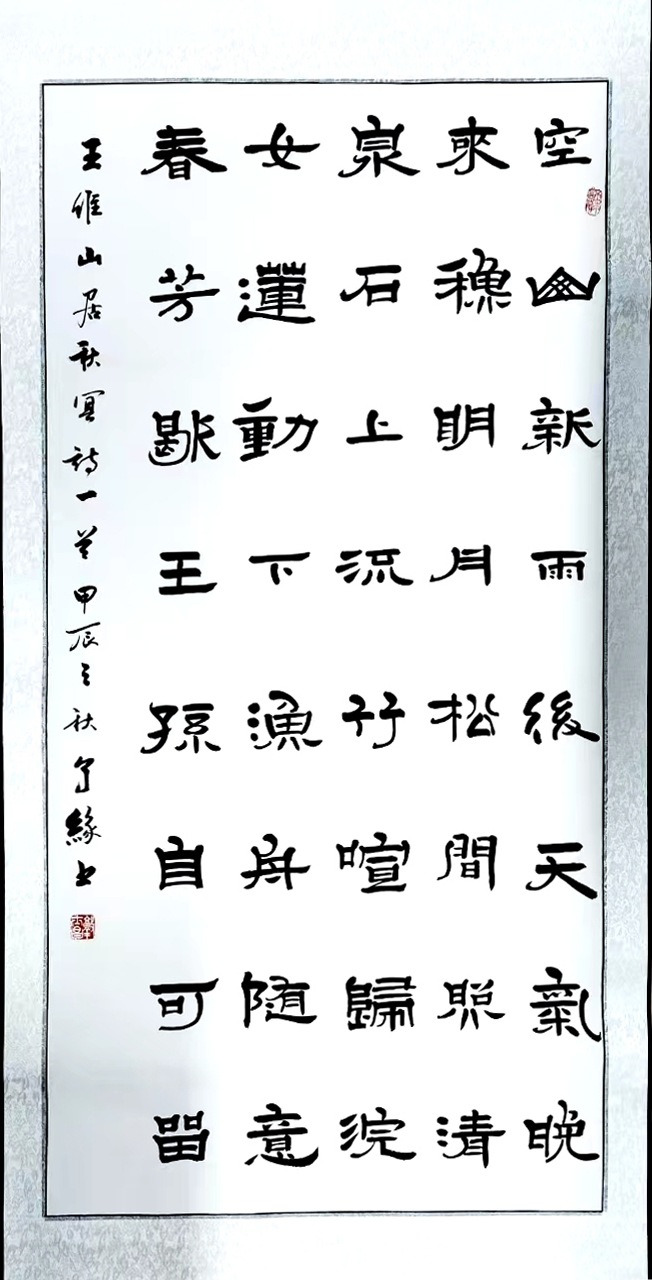 空山新雨後天氣晚
來穐明月松間照清
泉石上流竹喧歸浣
女蓮動下漁舟随意
春芳歇王孫自可留
王維山居秋冥詩一首甲辰之秋了緣书